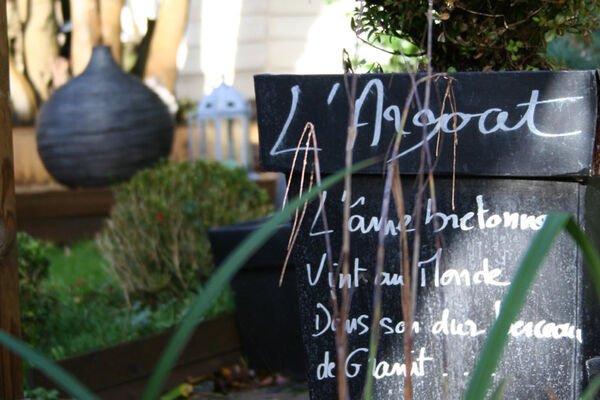 L'Argoat
L'âme bretonne
Vint au Monde
Dans son dur berceau
de Granit ...